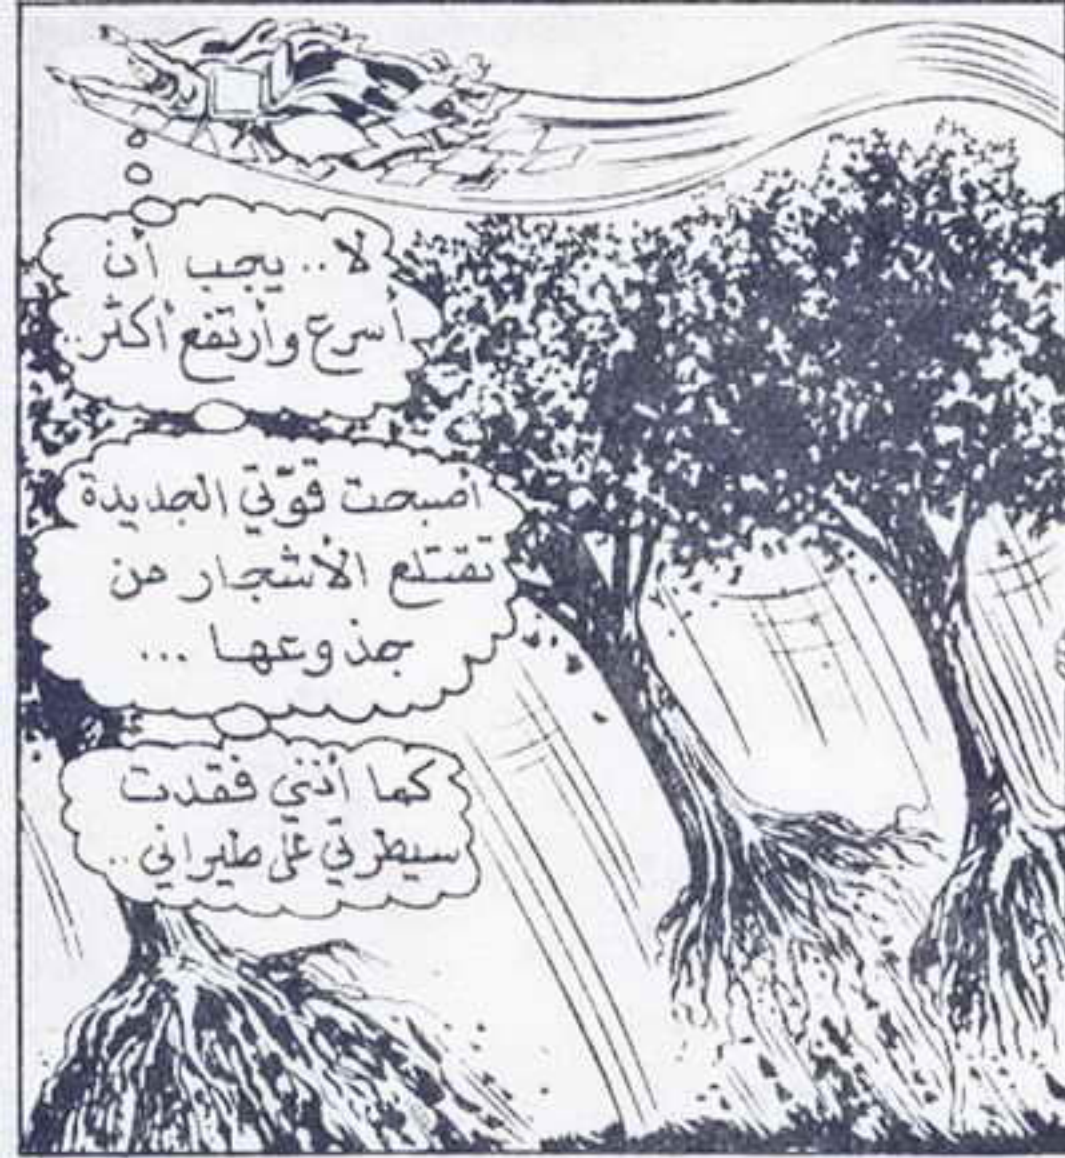 لا .. يجب أن
أسرع وأرتفع أكثر ..
أصبحت قوّتي الجديدة
تقتلع الأشجار من
جذوعها ...
كما أنني فقدت
سيطرتي على طيراني ..